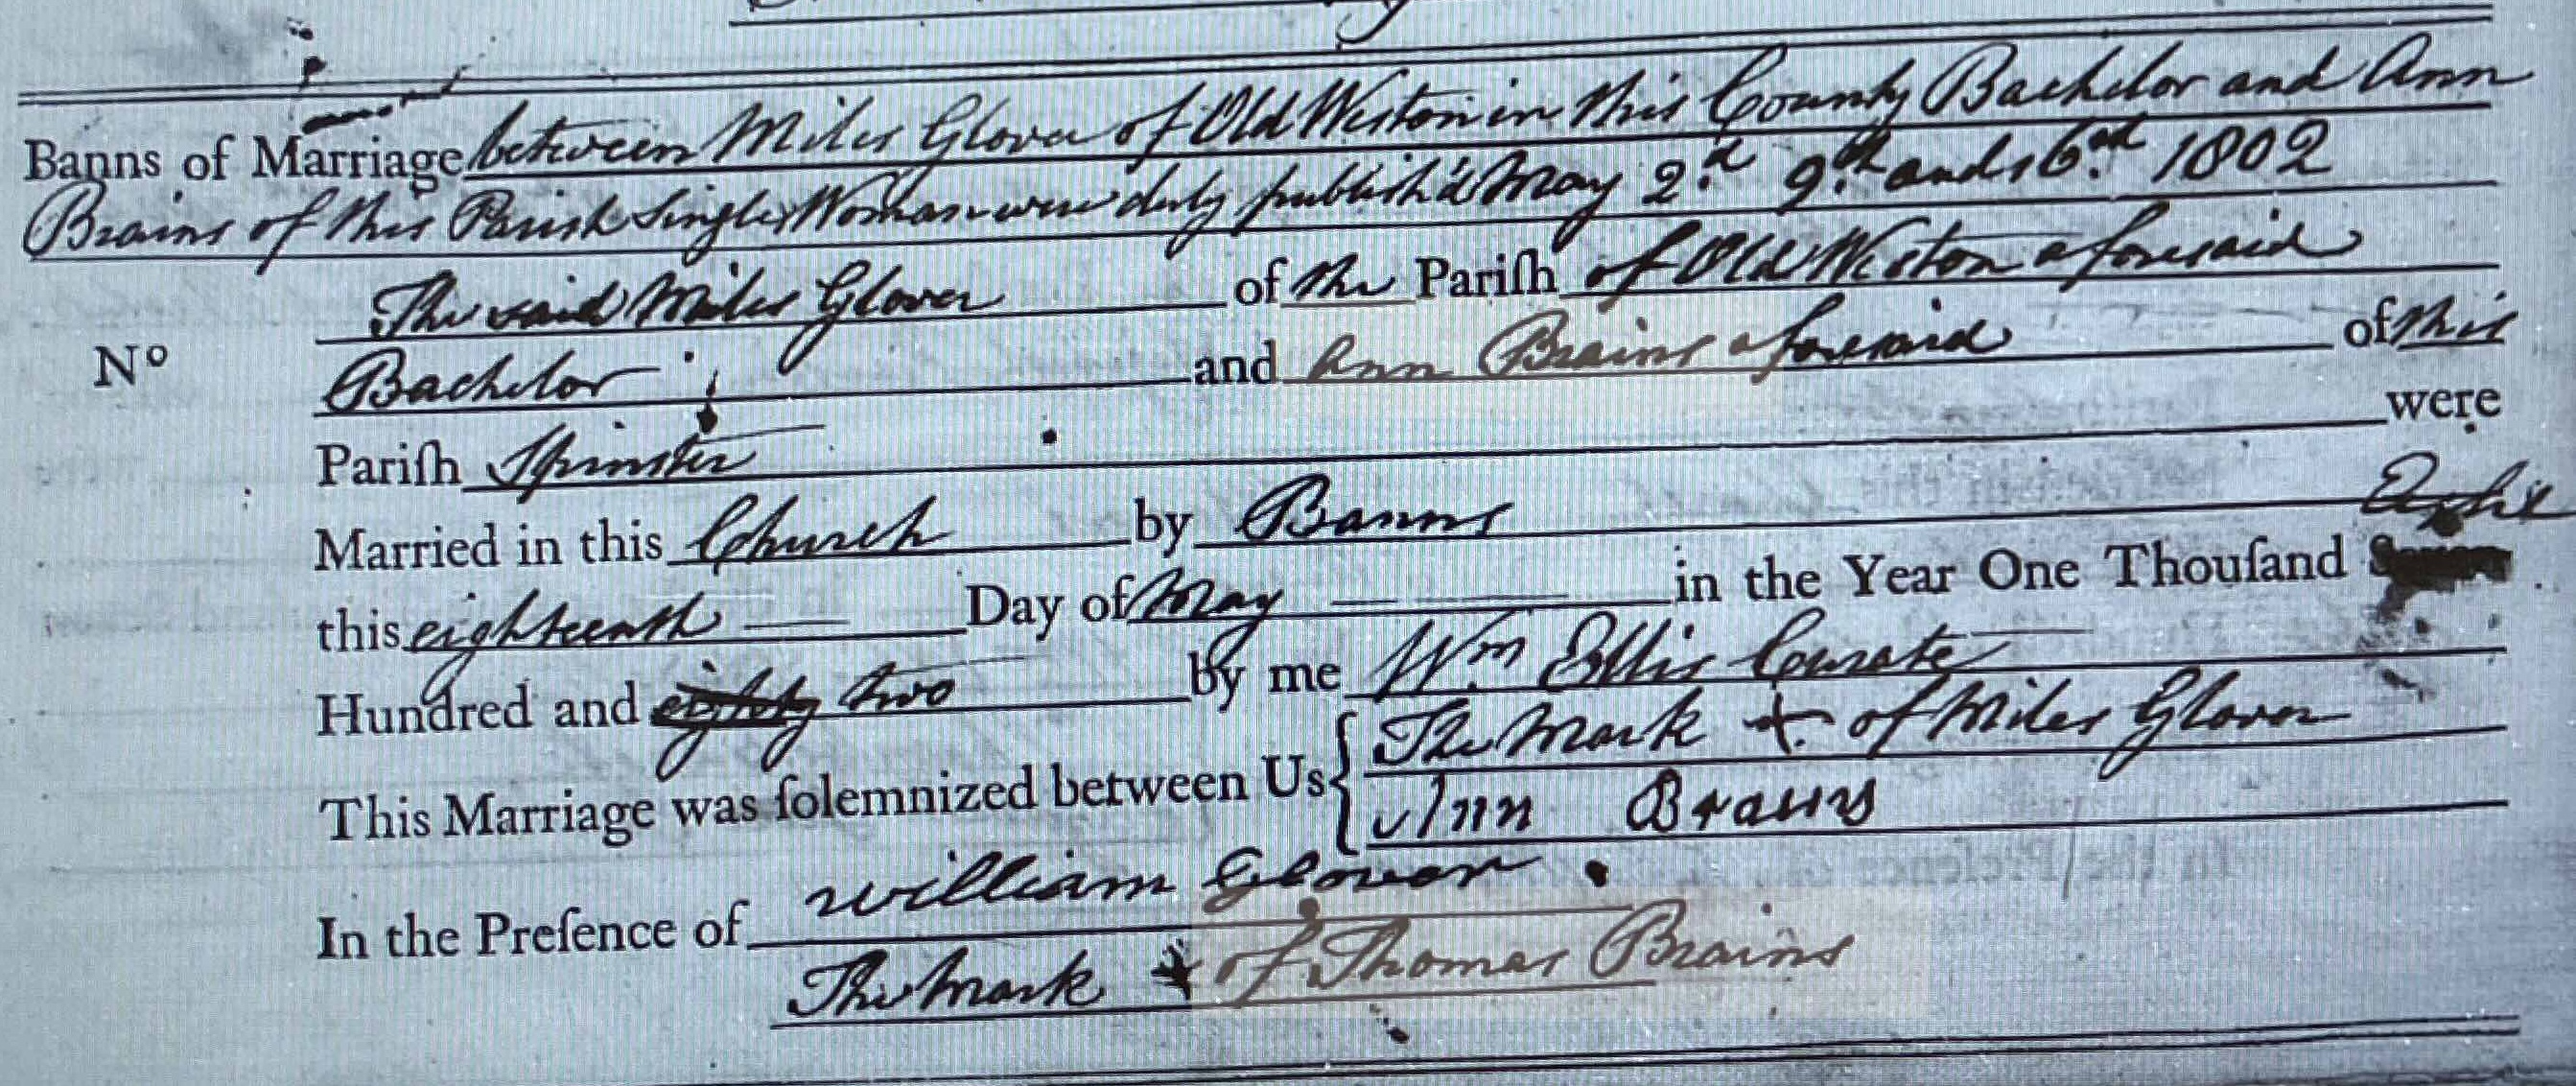 Banns of Marriage between Miles Glover of Old Weston in this County Bachelor and Ann
Brains of this Parish Single Woman were duly publish'd May 2.d 9.th and 16.th 1802
The said Miles Glover of the Pariſh of Old Weston aforesaid
Nº Bachelor and Ann Brains aforesaid of this
Pariſh Spinster were
Married in this Church by Banns
this eighteenth Day of May in the Year One Thouſand
Hundred and eighty two by me Wm Ellis Curate
This Marriage was ſolemnized between Us { The Mark + of Miles Glover
Ann Brains
In the Preſence of William Glover
The Mark + of Thomas Brains